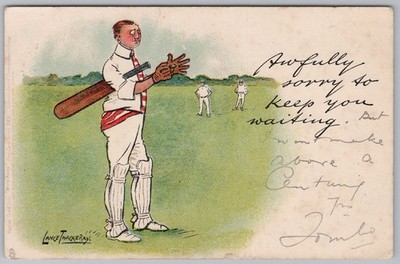 Awfully
sorry to
keep you
waiting. But
wont make
above a
Century
LANCE THACKERAY.